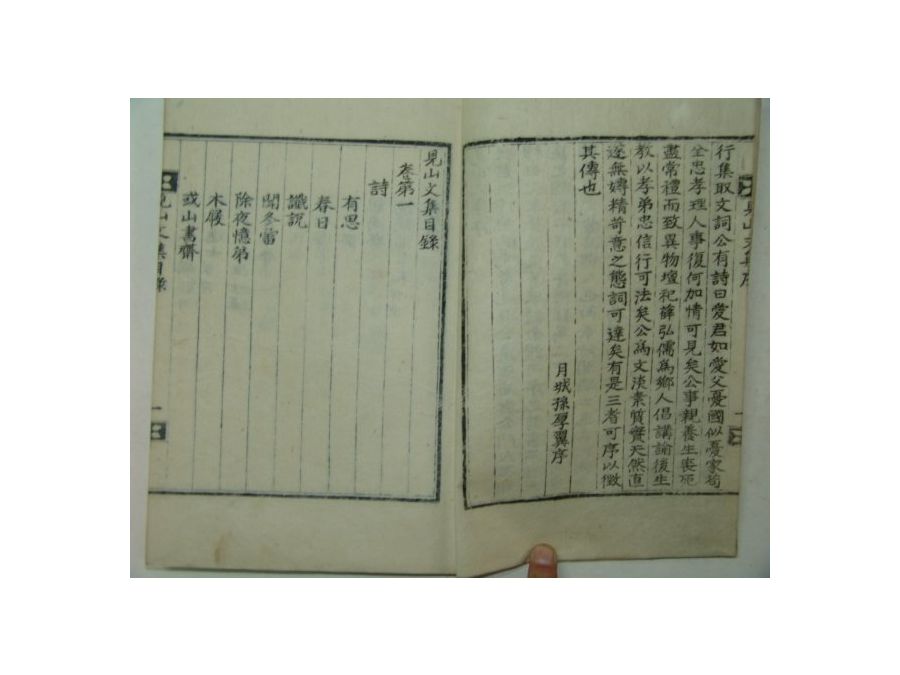 見山文集序
行集取文詞公有詩曰愛君如愛父憂國似憂家苟
全忠孝理人事復何加情可見矣公事親養生喪死
盡常禮而致異物壇祀薛弘儒為鄉人倡講論後生
教以孝弟忠信行可法矣公為文淡素質實天然直
遂無嫥精苛意之態詞可達矣有是三者可序以徵
其傳也
月城孫厚翼序
見山文集目錄
卷第一
詩
有思
春日
讖說
聞冬雷
除夜憶弟
木屐
或山書齋
見山文集目錄
一